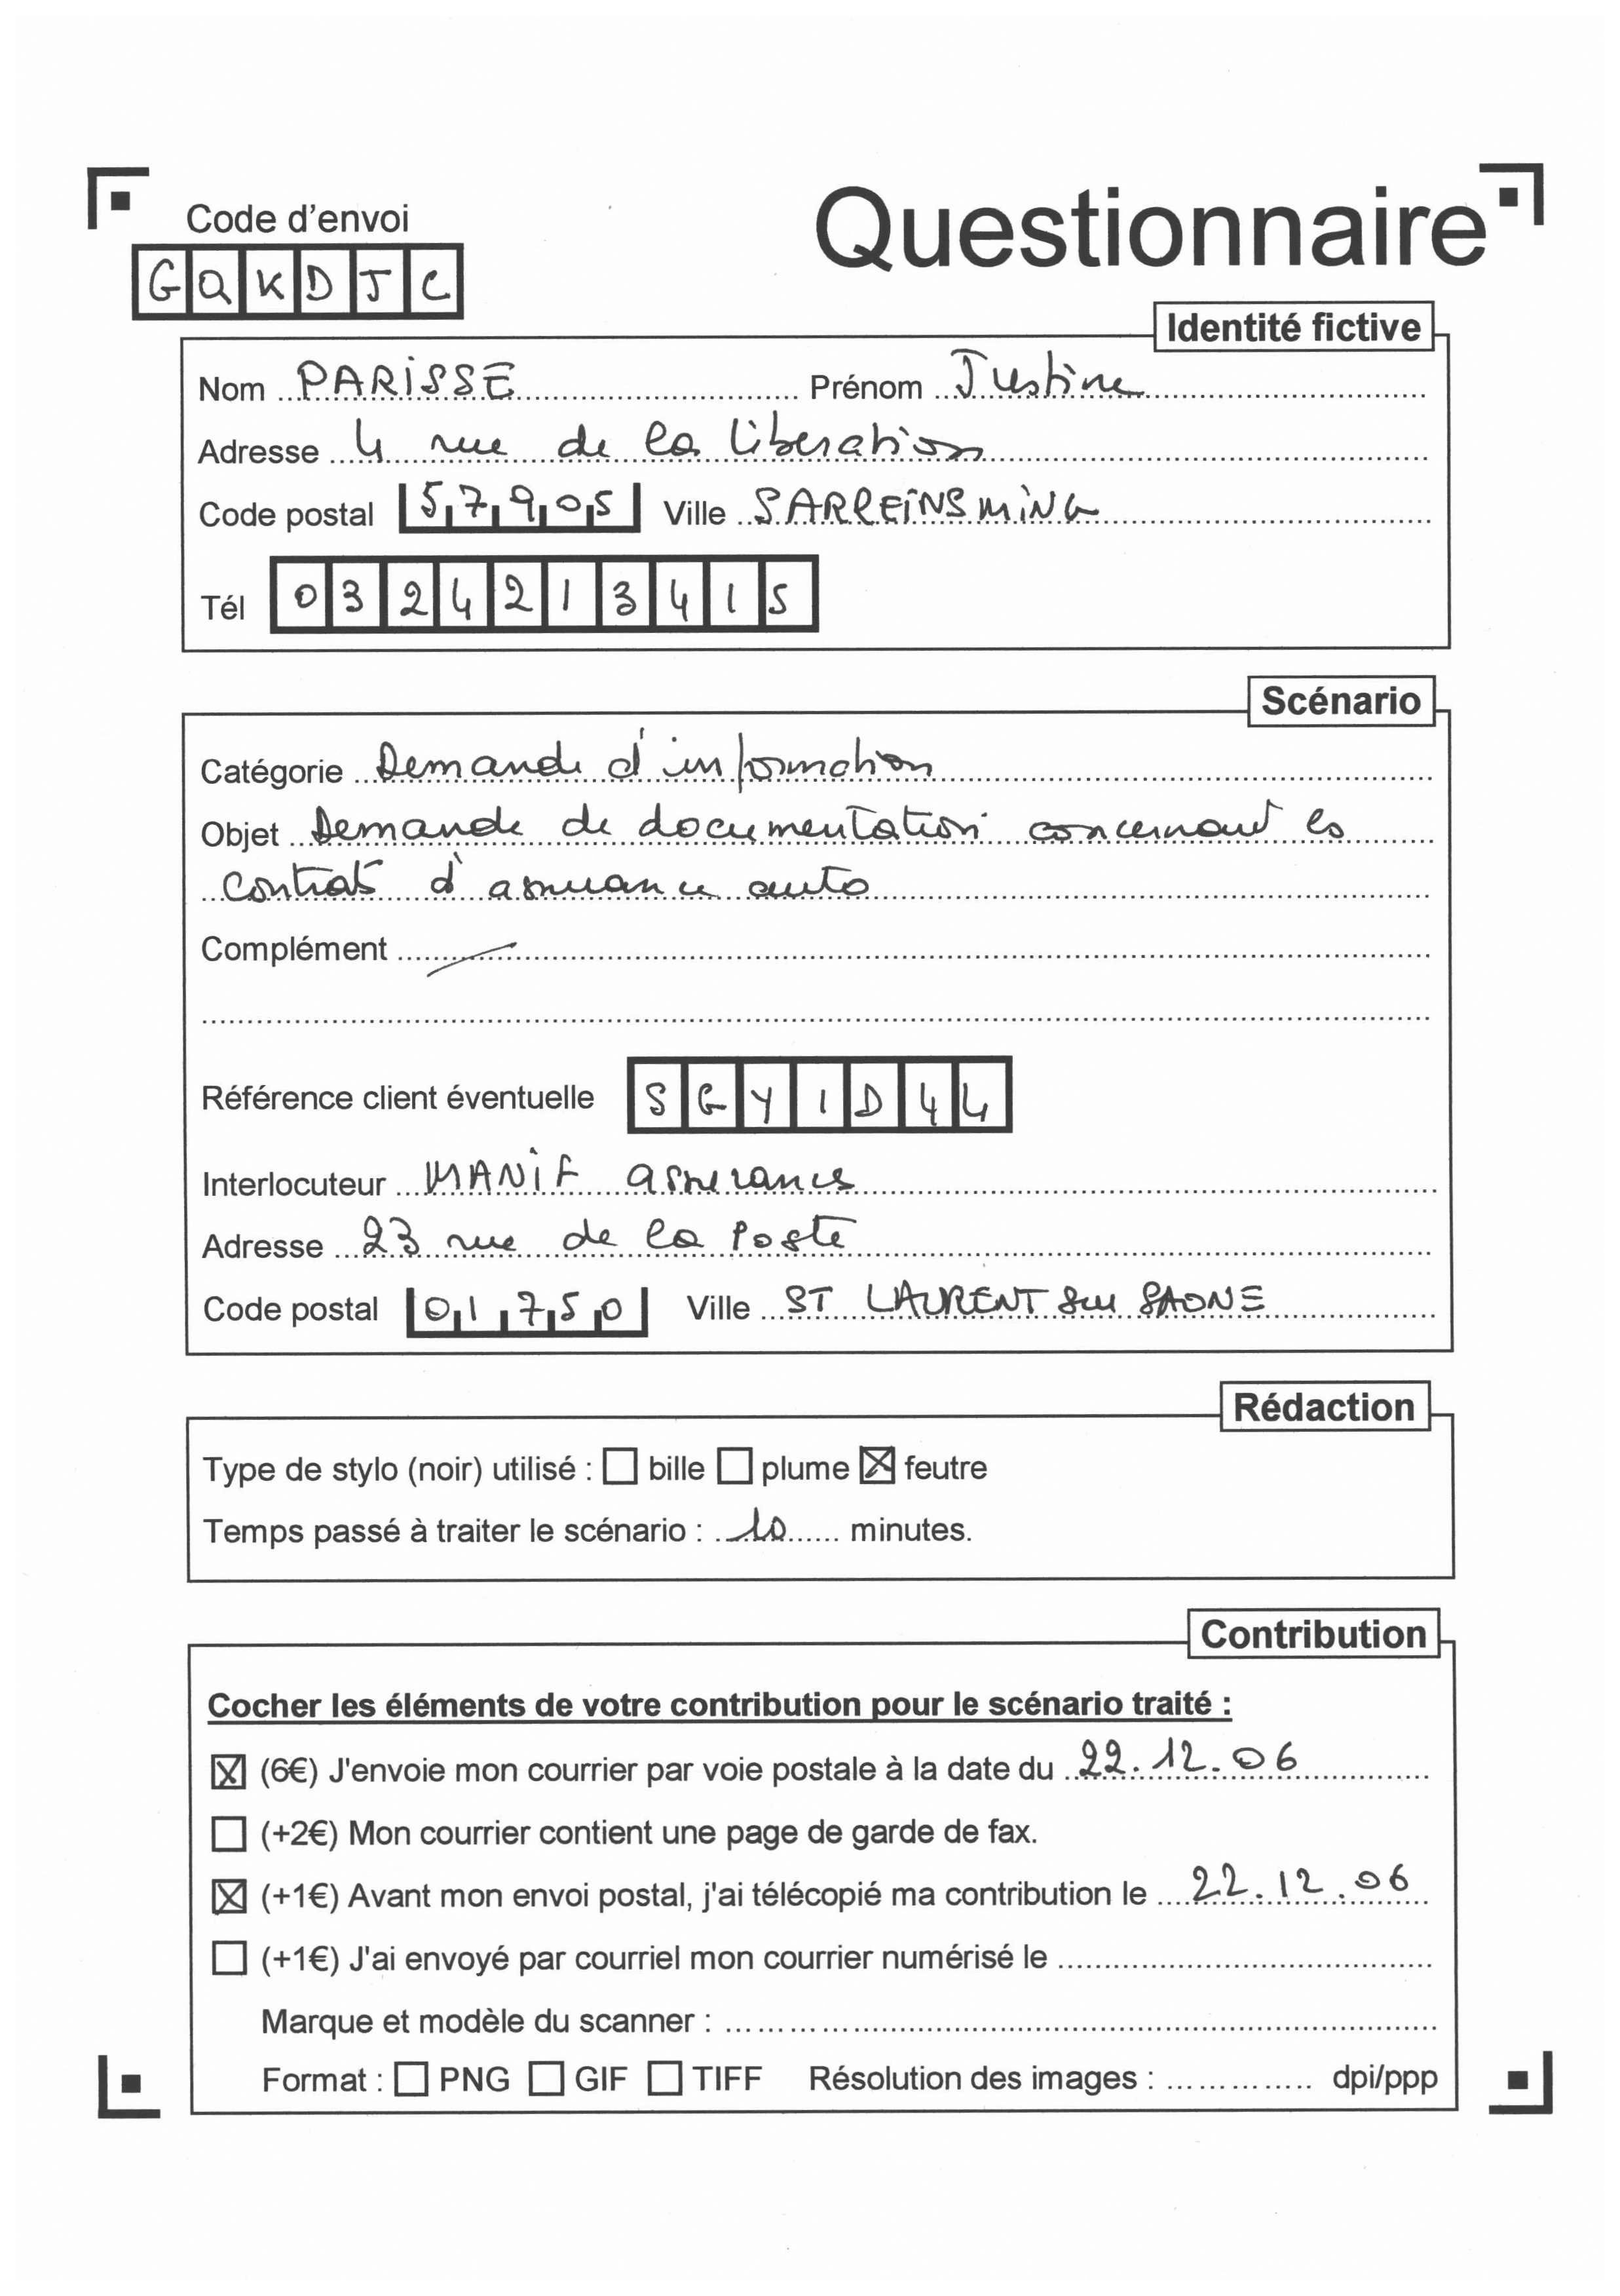 Code d'envoi
Questionnaire
GQKDJC
Identité fictive
Nom PARISSE Prénom Justine
Adresse 4 rue de la libération
Code postal 57905 Ville SARREINSMING
Tél 0324213415
Scénario
Catégorie Demande d'information
Objet Demande de documentation concernant les
contrats d'assurance auto
Complément
Référence client éventuelle SGYID44
Interlocuteur MANIF assurances
Adresse 23 rue de la Poste
Code postal 01750 Ville ST LAURENT sur SAONE
Rédaction
Type de stylo (noir) utilisé : ☐ bille ☐ plume ☒ feutre
Temps passé à traiter le scénario : 10 minutes.
Contribution
Cocher les éléments de votre contribution pour le scénario traité :
☒ (6€) J'envoie mon courrier par voie postale à la date du 22.12.06
☐ (+2€) Mon courrier contient une page de garde de fax.
☒ (+1€) Avant mon envoi postal, j'ai télécopié ma contribution le 22.12.06
☐ (+1€) J'ai envoyé par courriel mon courrier numérisé le
Marque et modèle du scanner :
Format : ☐ PNG ☐ GIF ☐ TIFF Résolution des images : dpi/ppp